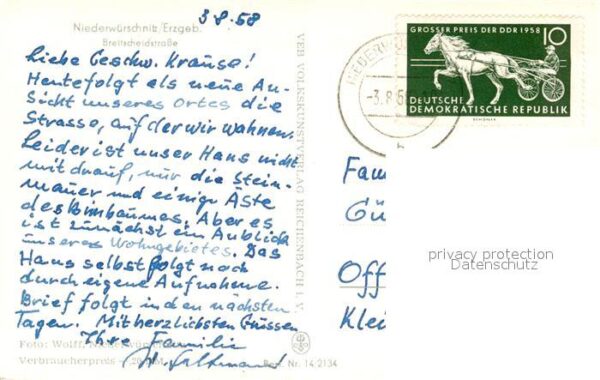 3.8.58
Niederwürschnitz/Erzgeb.
Breitscheidstraße
Liebe Geschw. Krause!
Heute folgt als neue An-
sicht unseres Ortes die
Strasse, auf der wir wohnen.
Leider ist unser Haus nicht
mit drauf, nur die Stein-
mauer und einige Äste
des Birnbaumes. Aber es
ist zunächst ein Anblick
unseres Wohngebietes. Das
Haus selbst folgt noch
durch eigene Aufnahme.
Brief folgt in den nächsten
Tagen. Mit herzlichsten Grüssen
Ihre Familie
Foto: Wolff,
Verbraucherpreis -.20 DM
Best. Nr. 14 2134
VEB VOLKSKUNSTVERLAG REICHENBACH I. V.
GROSSER PREIS DER DDR 1958
10
DEUTSCHE
DEMOKRATISCHE REPUBLIK
-3.8.58
Fam
Gü
Off
Klei
privacy protection
Datenschutz